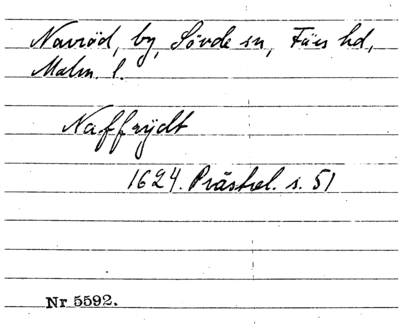 Navröd, by, Sövde sn, Färs hd,
Malm. l.
Naffrydt
1624. Prästrel. s. 51
Nr 5592.